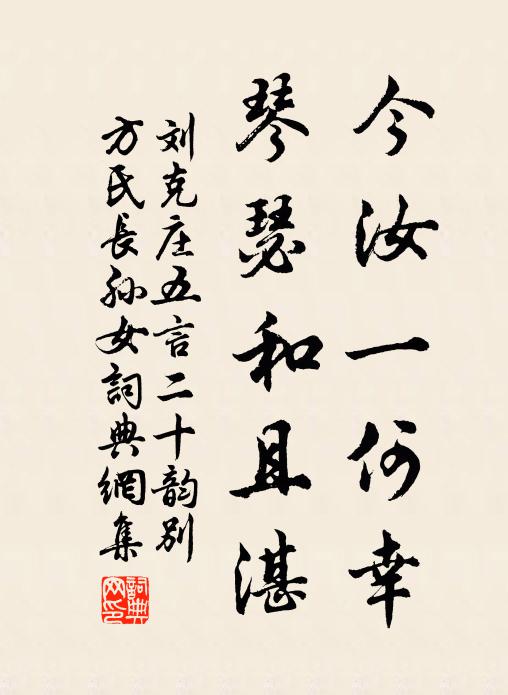 今汝一何幸
琴瑟和且湛
刘克庄五言二十韵别
方氏長孙女詞典網集
詞典网印